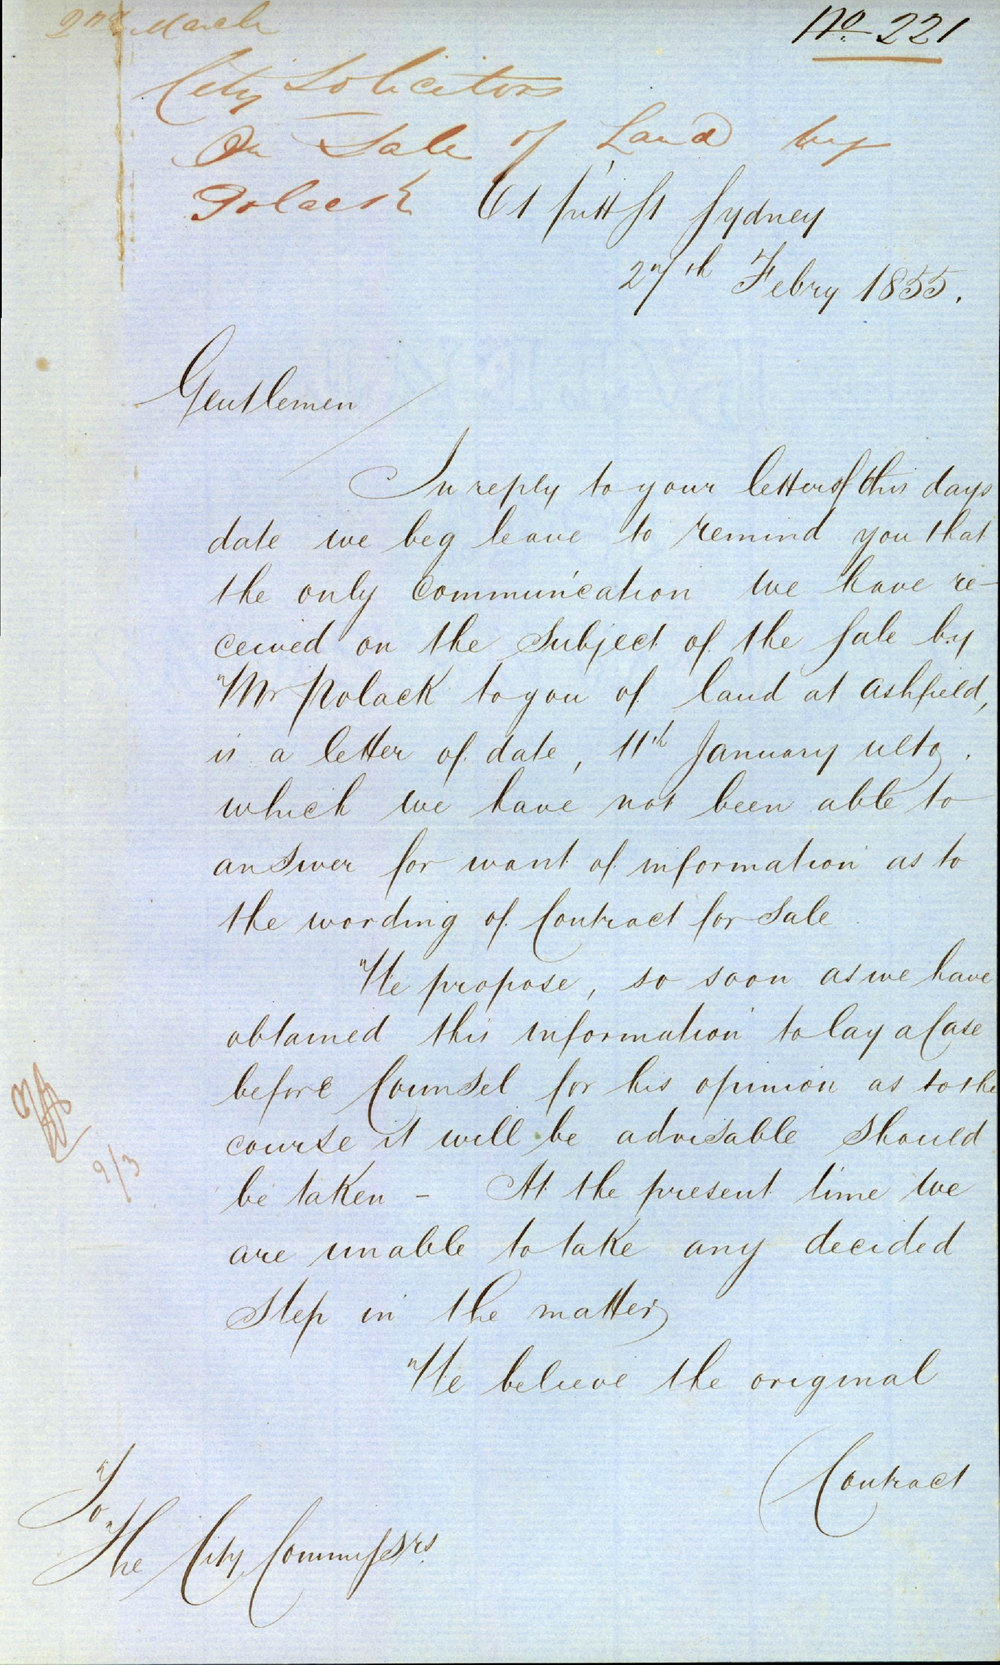 2nd March
No. 221
City Solicitors
On Sale of Land by
Polack
61 Pitt St Sydney
27th Febry 1855.
Gentlemen
In reply to your letter of this days
date we beg leave to remind you that
the only communication we have re-
ceived on the Subject of the Sale by
Mr Polack to you of land at Ashfield,
is a letter of date, 11th January ulto.
which we have not been able to
answer for want of information as to
the wording of Contract for Sale
We propose, so soon as we have
obtained this information to lay a Case
before Counsel for his opinion as to the
course it will be advisable should
be taken - At the present time we
are unable to take any decided
Step in the matter
We believe the original
Contract
9/3
To
The City Commissrs.